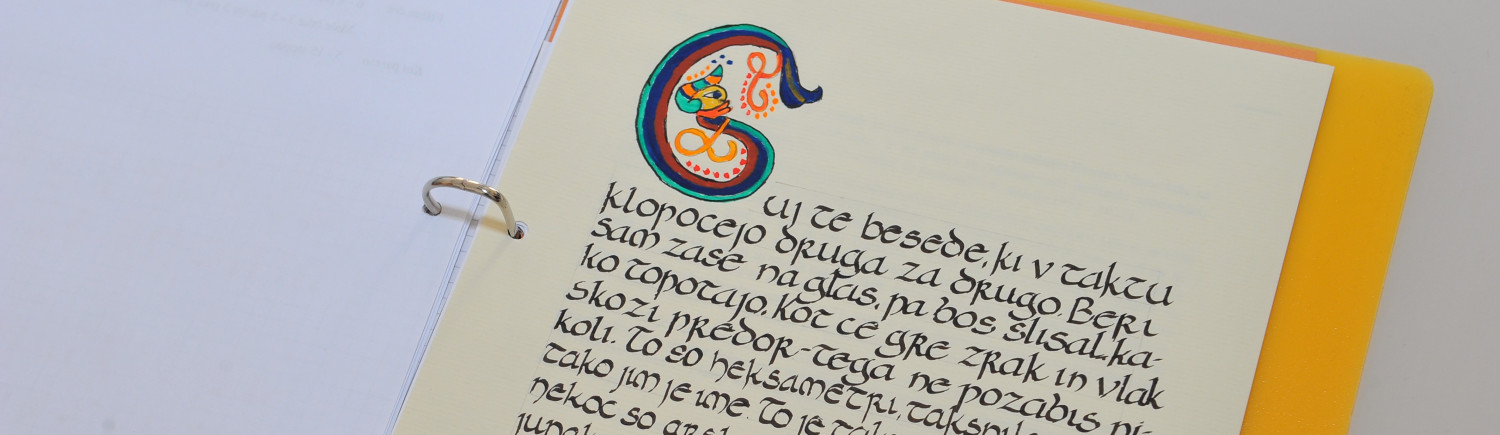 Cuj te besede, ki v taktu
klopocejo druga za drugo. Beri
sam zase na glas, pa bos slisal, ka-
ko topotajo, kot ce gre zrak in vlak
skozi predor - tega ne pozabis ni-
koli. To so heksametri,
tako jim je ime. To je
nekoč so